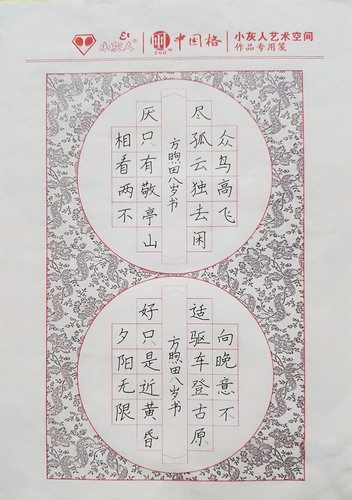 小灰人®
中国格
小灰人艺术空间
作品专用笺
众鸟高飞
尽孤云独去闲
相看两不
厌只有敬亭山
方煦田八岁书
向晚意不
适驱车登古原
夕阳无限
好只是近黄昏
方煦田八岁书